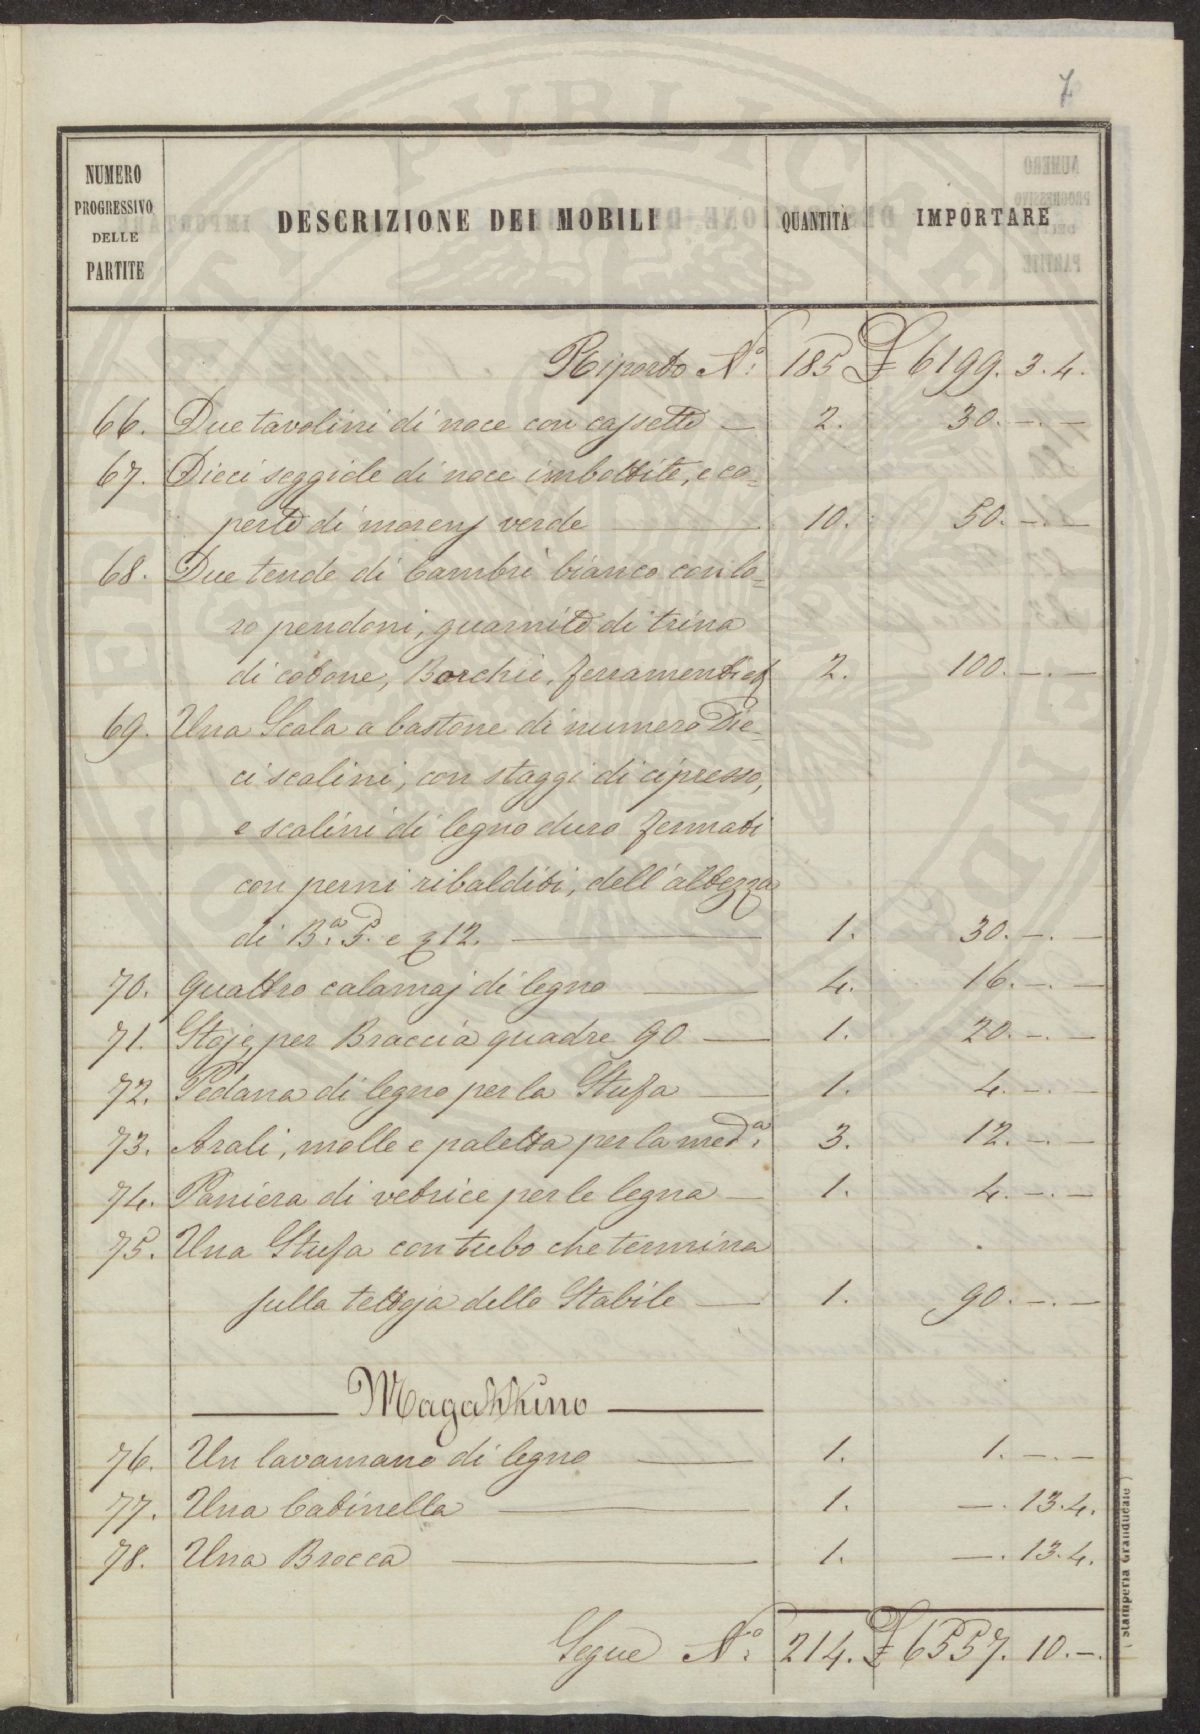 7
NUMERO PROGRESSIVO DELLE PARTITE DESCRIZIONE DEI MOBILI QUANTITÀ IMPORTARE
Riporto N.° 185 £ 6199. 3. 4.
66. Due tavolini di noce con cassetto — 2. 30. –. –
67. Dieci seggiole di noce imbottite, e co=
perte di morens verde — 10. 50. –. –
68. Due tende di Cambrì bianco con lo=
ro pendoni, guarnite di trina
di cotone, Borchie, ferramenti ef 2. 100. –. –
69. Una Scala a bastone di numero Die=
ci scalini, con staggi di cipresso,
e scalini di legno duro fermati
con perni ribalditi, dell'altezza
di B.a 5. e 12. — 1. 30. –. –
70. Quattro calamaj di legno — 4. 16. –. –
71. Stoje, per Braccia quadre 90 — 1. 20. –. –
72. Pedana di legno per la Stufa — 1. 4. –. –
73. Arali, molle e paletta per la med.a 3. 12. –. –
74. Paniera di vetrice per le legna — 1. 4. –. –
75. Una Stufa con tubo che termina
sulla tettoja dello Stabile — 1. 90. –. –
— Magazzino —
76. Un lavamano di legno — 1. 1. –. –
77. Una Catinella — 1. –. 13. 4.
78. Una Brocca — 1. –. 13. 4.
Segue N.° 214. £ 6557. 10. –.
( Stamperia Granducale )